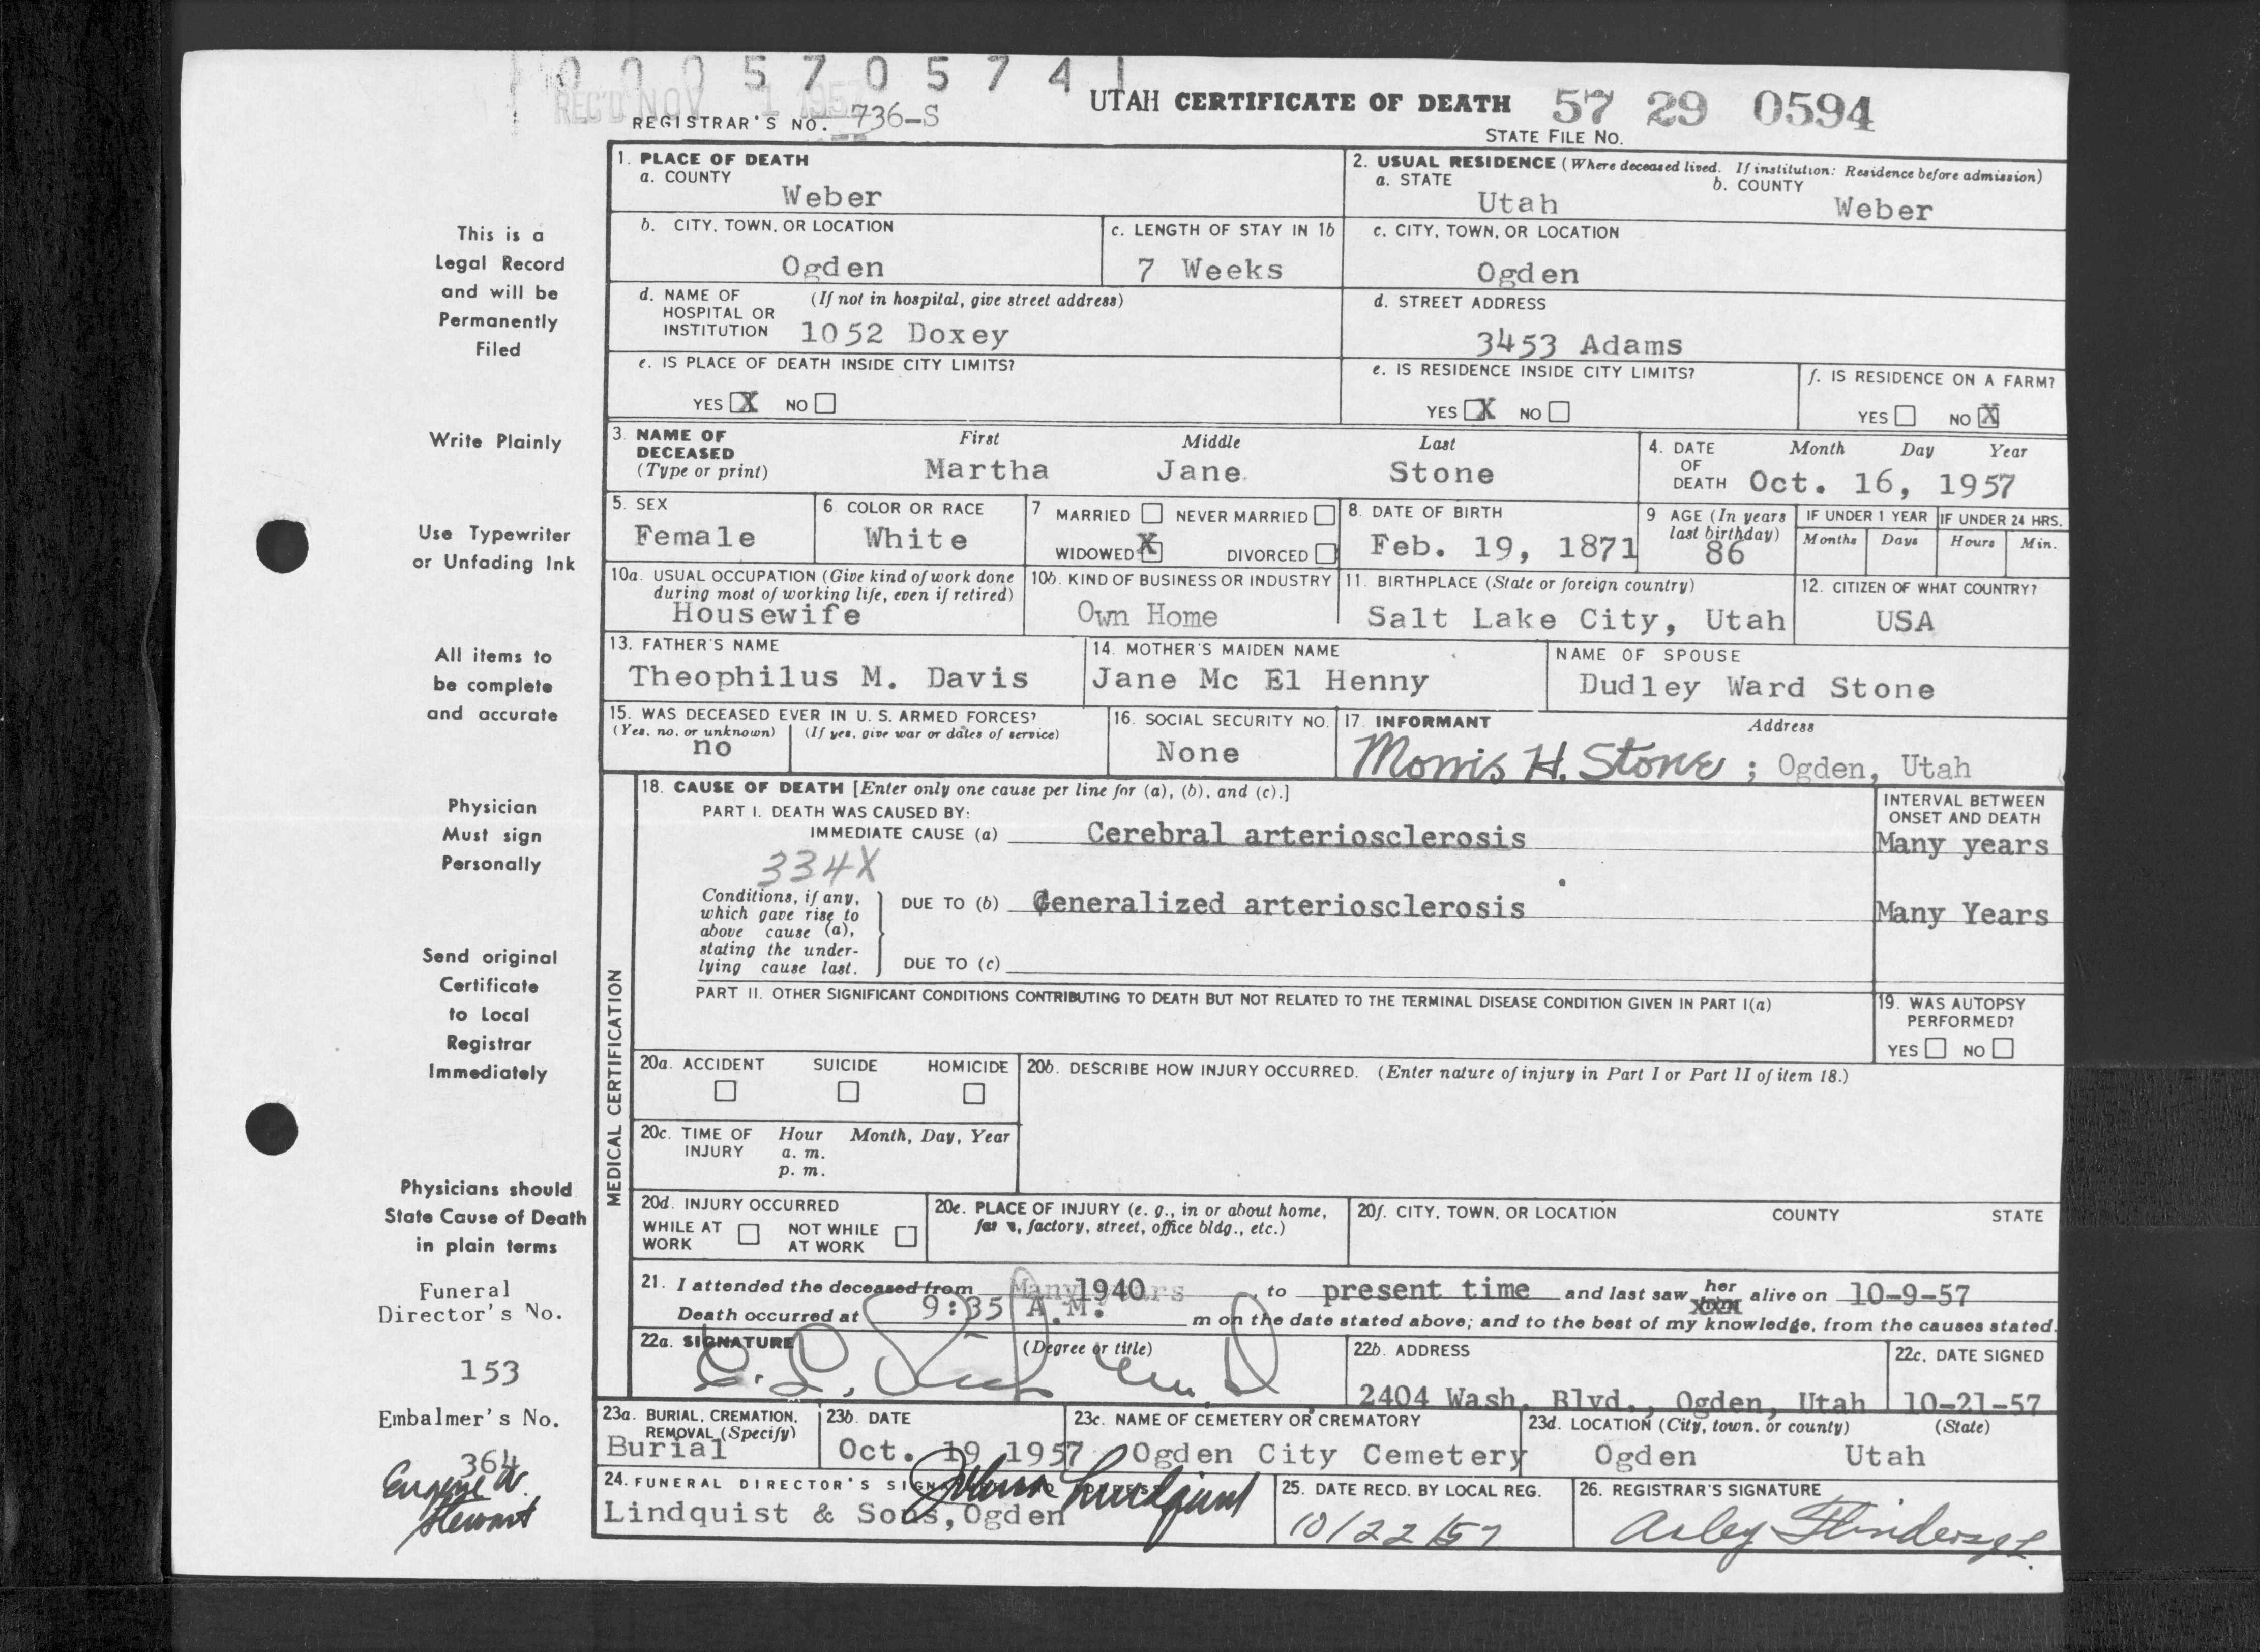 0 0 0 5 7 0 5 7 4 1
REC'D NOV 1 1957
REGISTRAR'S NO. 736-S
UTAH CERTIFICATE OF DEATH 57 29 0594
STATE FILE NO.
This is a
Legal Record
and will be
Permanently
Filed
Write Plainly
Use Typewriter
or Unfading Ink
All items to
be complete
and accurate
Physician
Must sign
Personally
Send original
Certificate
to Local
Registrar
Immediately
Physicians should
State Cause of Death
in plain terms
Funeral
Director's No.
153
Embalmer's No.
364
Eugene W.
Stewart
1. PLACE OF DEATH
a. COUNTY
Weber
2. USUAL RESIDENCE (Where deceased lived. If institution: Residence before admission)
a. STATE b. COUNTY
Utah Weber
b. CITY, TOWN, OR LOCATION
Ogden
c. LENGTH OF STAY IN 1b
7 Weeks
c. CITY, TOWN, OR LOCATION
Ogden
d. NAME OF (If not in hospital, give street address)
HOSPITAL OR
INSTITUTION 1052 Doxey
d. STREET ADDRESS
3453 Adams
e. IS PLACE OF DEATH INSIDE CITY LIMITS?
YES X NO
e. IS RESIDENCE INSIDE CITY LIMITS?
YES X NO
f. IS RESIDENCE ON A FARM?
YES NO X
3. NAME OF First Middle Last
DECEASED
(Type or print) Martha Jane Stone
4. DATE Month Day Year
OF
DEATH Oct. 16, 1957
5. SEX
Female
6. COLOR OR RACE
White
7 MARRIED NEVER MARRIED
WIDOWED X DIVORCED
8. DATE OF BIRTH
Feb. 19, 1871
9 AGE (In years
last birthday)
86
IF UNDER 1 YEAR IF UNDER 24 HRS.
Months Days Hours Min.
10a. USUAL OCCUPATION (Give kind of work done
during most of working life, even if retired)
Housewife
10b. KIND OF BUSINESS OR INDUSTRY
Own Home
11. BIRTHPLACE (State or foreign country)
Salt Lake City, Utah
12. CITIZEN OF WHAT COUNTRY?
USA
13. FATHER'S NAME
Theophilus M. Davis
14. MOTHER'S MAIDEN NAME
Jane Mc El Henny
NAME OF SPOUSE
Dudley Ward Stone
15. WAS DECEASED EVER IN U. S. ARMED FORCES?
(Yes, no, or unknown) (If yes, give war or dates of service)
no
16. SOCIAL SECURITY NO.
None
17. INFORMANT Address
Morris H. Stone ; Ogden, Utah
MEDICAL CERTIFICATION
18. CAUSE OF DEATH [Enter only one cause per line for (a), (b), and (c).]
PART I. DEATH WAS CAUSED BY:
IMMEDIATE CAUSE (a) Cerebral arteriosclerosis
INTERVAL BETWEEN
ONSET AND DEATH
Many years
334X
Conditions, if any,
which gave rise to
above cause (a),
stating the under-
lying cause last.
DUE TO (b) Generalized arteriosclerosis
Many Years
DUE TO (c)
PART II. OTHER SIGNIFICANT CONDITIONS CONTRIBUTING TO DEATH BUT NOT RELATED TO THE TERMINAL DISEASE CONDITION GIVEN IN PART I(a)
19. WAS AUTOPSY
PERFORMED?
YES NO
20a. ACCIDENT SUICIDE HOMICIDE
20b. DESCRIBE HOW INJURY OCCURRED. (Enter nature of injury in Part I or Part II of item 18.)
20c. TIME OF Hour Month, Day, Year
INJURY a. m.
p. m.
20d. INJURY OCCURRED
WHILE AT NOT WHILE
WORK AT WORK
20e. PLACE OF INJURY (e. g., in or about home,
farm, factory, street, office bldg., etc.)
20f. CITY, TOWN, OR LOCATION COUNTY STATE
21. I attended the deceased from 1940, to present time and last saw her alive on 10-9-57
Death occurred at 9:35 A.M. m on the date stated above; and to the best of my knowledge, from the causes stated.
22a. SIGNATURE (Degree or title)
22b. ADDRESS
2404 Wash. Blvd., Ogden, Utah
22c. DATE SIGNED
10-21-57
23a. BURIAL, CREMATION,
REMOVAL (Specify)
Burial
23b. DATE
Oct. 19 1957
23c. NAME OF CEMETERY OR CREMATORY
Ogden City Cemetery
23d. LOCATION (City, town, or county) (State)
Ogden Utah
24. FUNERAL DIRECTOR'S
Lindquist & Sons, Ogden
25. DATE RECD. BY LOCAL REG.
10/22/57
26. REGISTRAR'S SIGNATURE